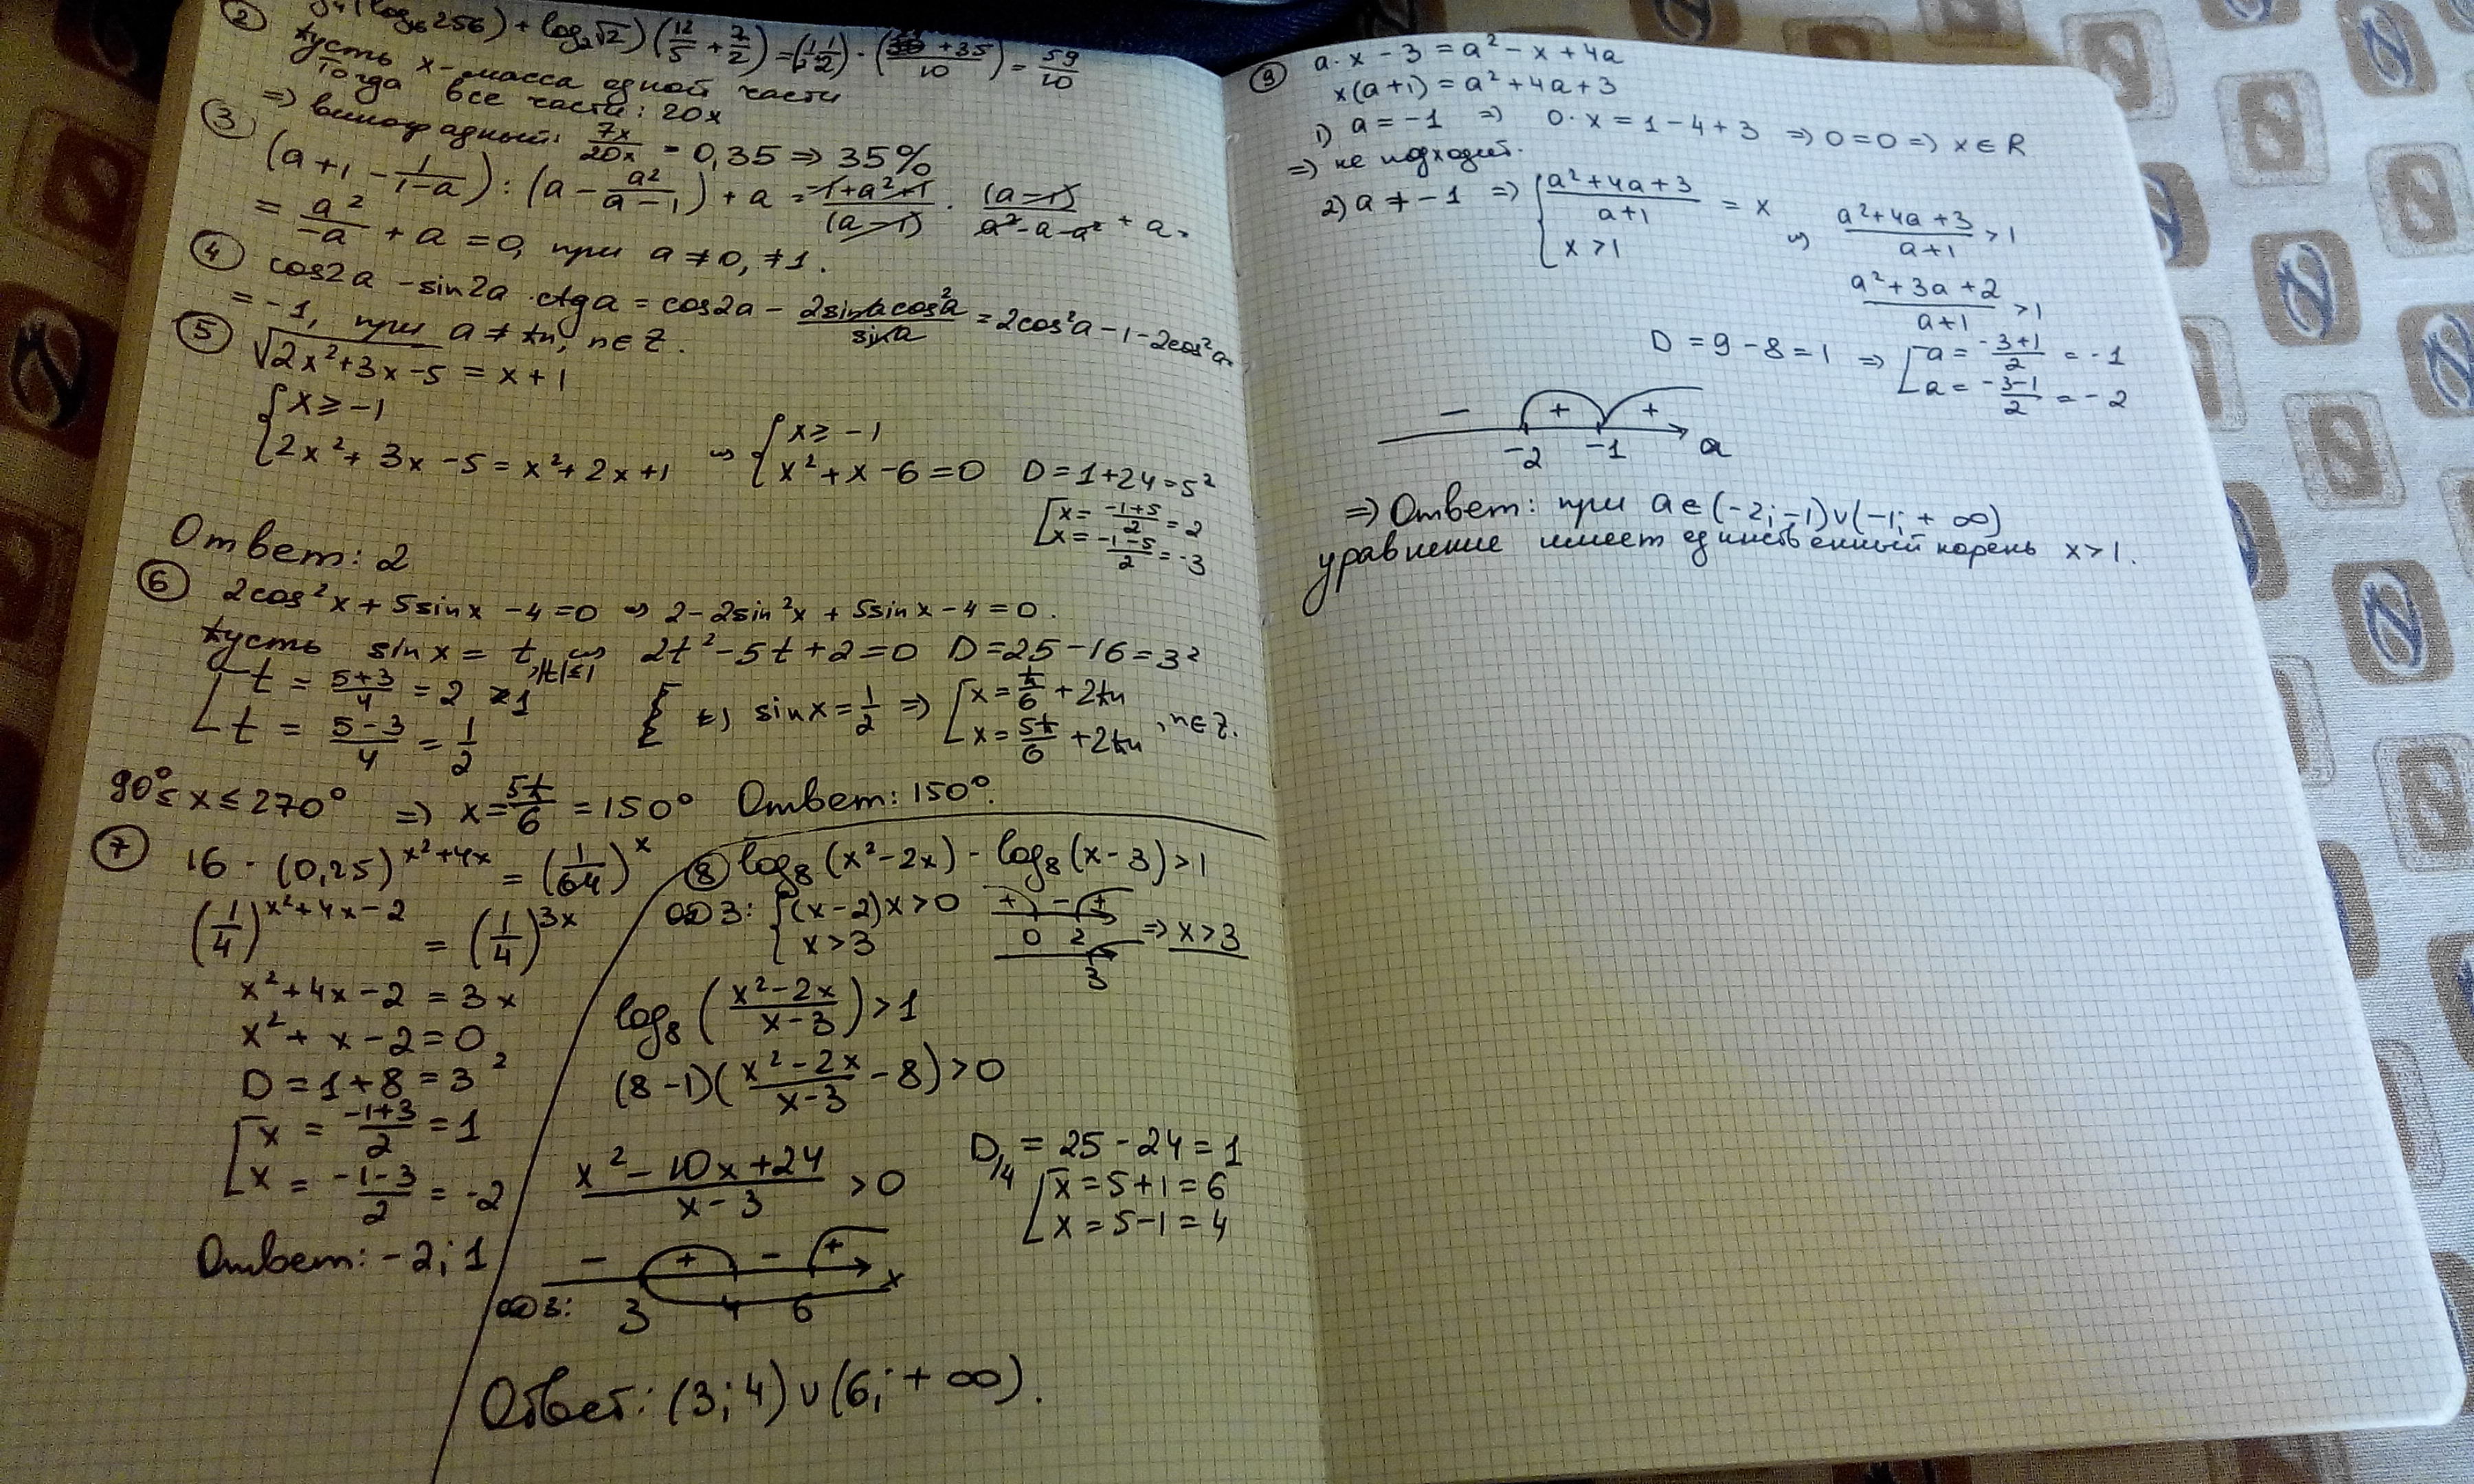 (log₁₆256) + log₂√2)(12/5 + 7/2) = (1 1/2)·( + 35/10) = 59/10
② Пусть x - масса одной части
Тогда все части: 20x
=> виноградный: 7x/20x = 0,35 => 35%
③ (a+1 - 1/(1-a)) : (a - a²/(a-1)) + a = (-1+a²+1)/(a-1) · (a-1)/(a²-a-a²) + a =
= a²/-a + a = 0, при a ≠ 0, ≠ 1.
④ cos2a - sin2a·ctga = cos2a - 2sina cos²a/sina = 2cos²a - 1 - 2cos²a =
= -1, при a ≠ πn, n∈Z.
⑤ √(2x²+3x-5) = x+1
{x ⩾ -1
{2x²+3x-5 = x²+2x+1 ⇔ {x ⩾ -1
{x²+x-6=0 D=1+24=5²
[x = (-1+5)/2 = 2
[x = (-1-5)/2 = -3
Ответ: 2
⑥ 2cos²x + 5sinx - 4 = 0 ⇔ 2-2sin²x + 5sinx - 4 = 0.
Пусть sinx = t, |t|≤1 ⇔ 2t²-5t+2=0 D=25-16=3²
[t = (5+3)/4 = 2 >1
[t = (5-3)/4 = 1/2
⇔ sinx = 1/2 => [x = π/6 + 2πn
[x = 5π/6 + 2πn, n∈Z.
90° ≤ x ≤ 270° => x = 5π/6 = 150° Ответ: 150°.
⑦ 16·(0,25)^(x²+4x) = (1/64)^x
(1/4)^(x²+4x-2) = (1/4)^(3x)
x²+4x-2 = 3x
x²+x-2=0
D = 1+8 = 3²
[x = (-1+3)/2 = 1
[x = (-1-3)/2 = -2
Ответ: -2; 1
⑧ log₈(x²-2x) - log₈(x-3) > 1
ОДЗ: {(x-2)x>0
{x>3
+ - +
0 2
3
=> x>3
log₈((x²-2x)/(x-3)) > 1
(8-1)((x²-2x)/(x-3) - 8) > 0
(x²-10x+24)/(x-3) > 0
D/4 = 25-24 = 1
[x = 5+1 = 6
[x = 5-1 = 4
- + - + x
ОДЗ: 3 4 6
Ответ: (3; 4)∪(6; +∞).
⑨ a·x - 3 = a² - x + 4a
x(a+1) = a²+4a+3
1) a = -1 => 0·x = 1-4+3 => 0=0 => x∈R
=> не подходит.
2) a ≠ -1 => {(a²+4a+3)/(a+1) = x
{x>1
⇔ (a²+4a+3)/(a+1) > 1
(a²+3a+2)/(a+1) > 1
D = 9-8 = 1 => [a = (-3+1)/2 = -1
[a = (-3-1)/2 = -2
- + +
-2 -1 a
=> Ответ: при a∈(-2; -1)∪(-1; +∞)
уравнение имеет единственный корень x>1.